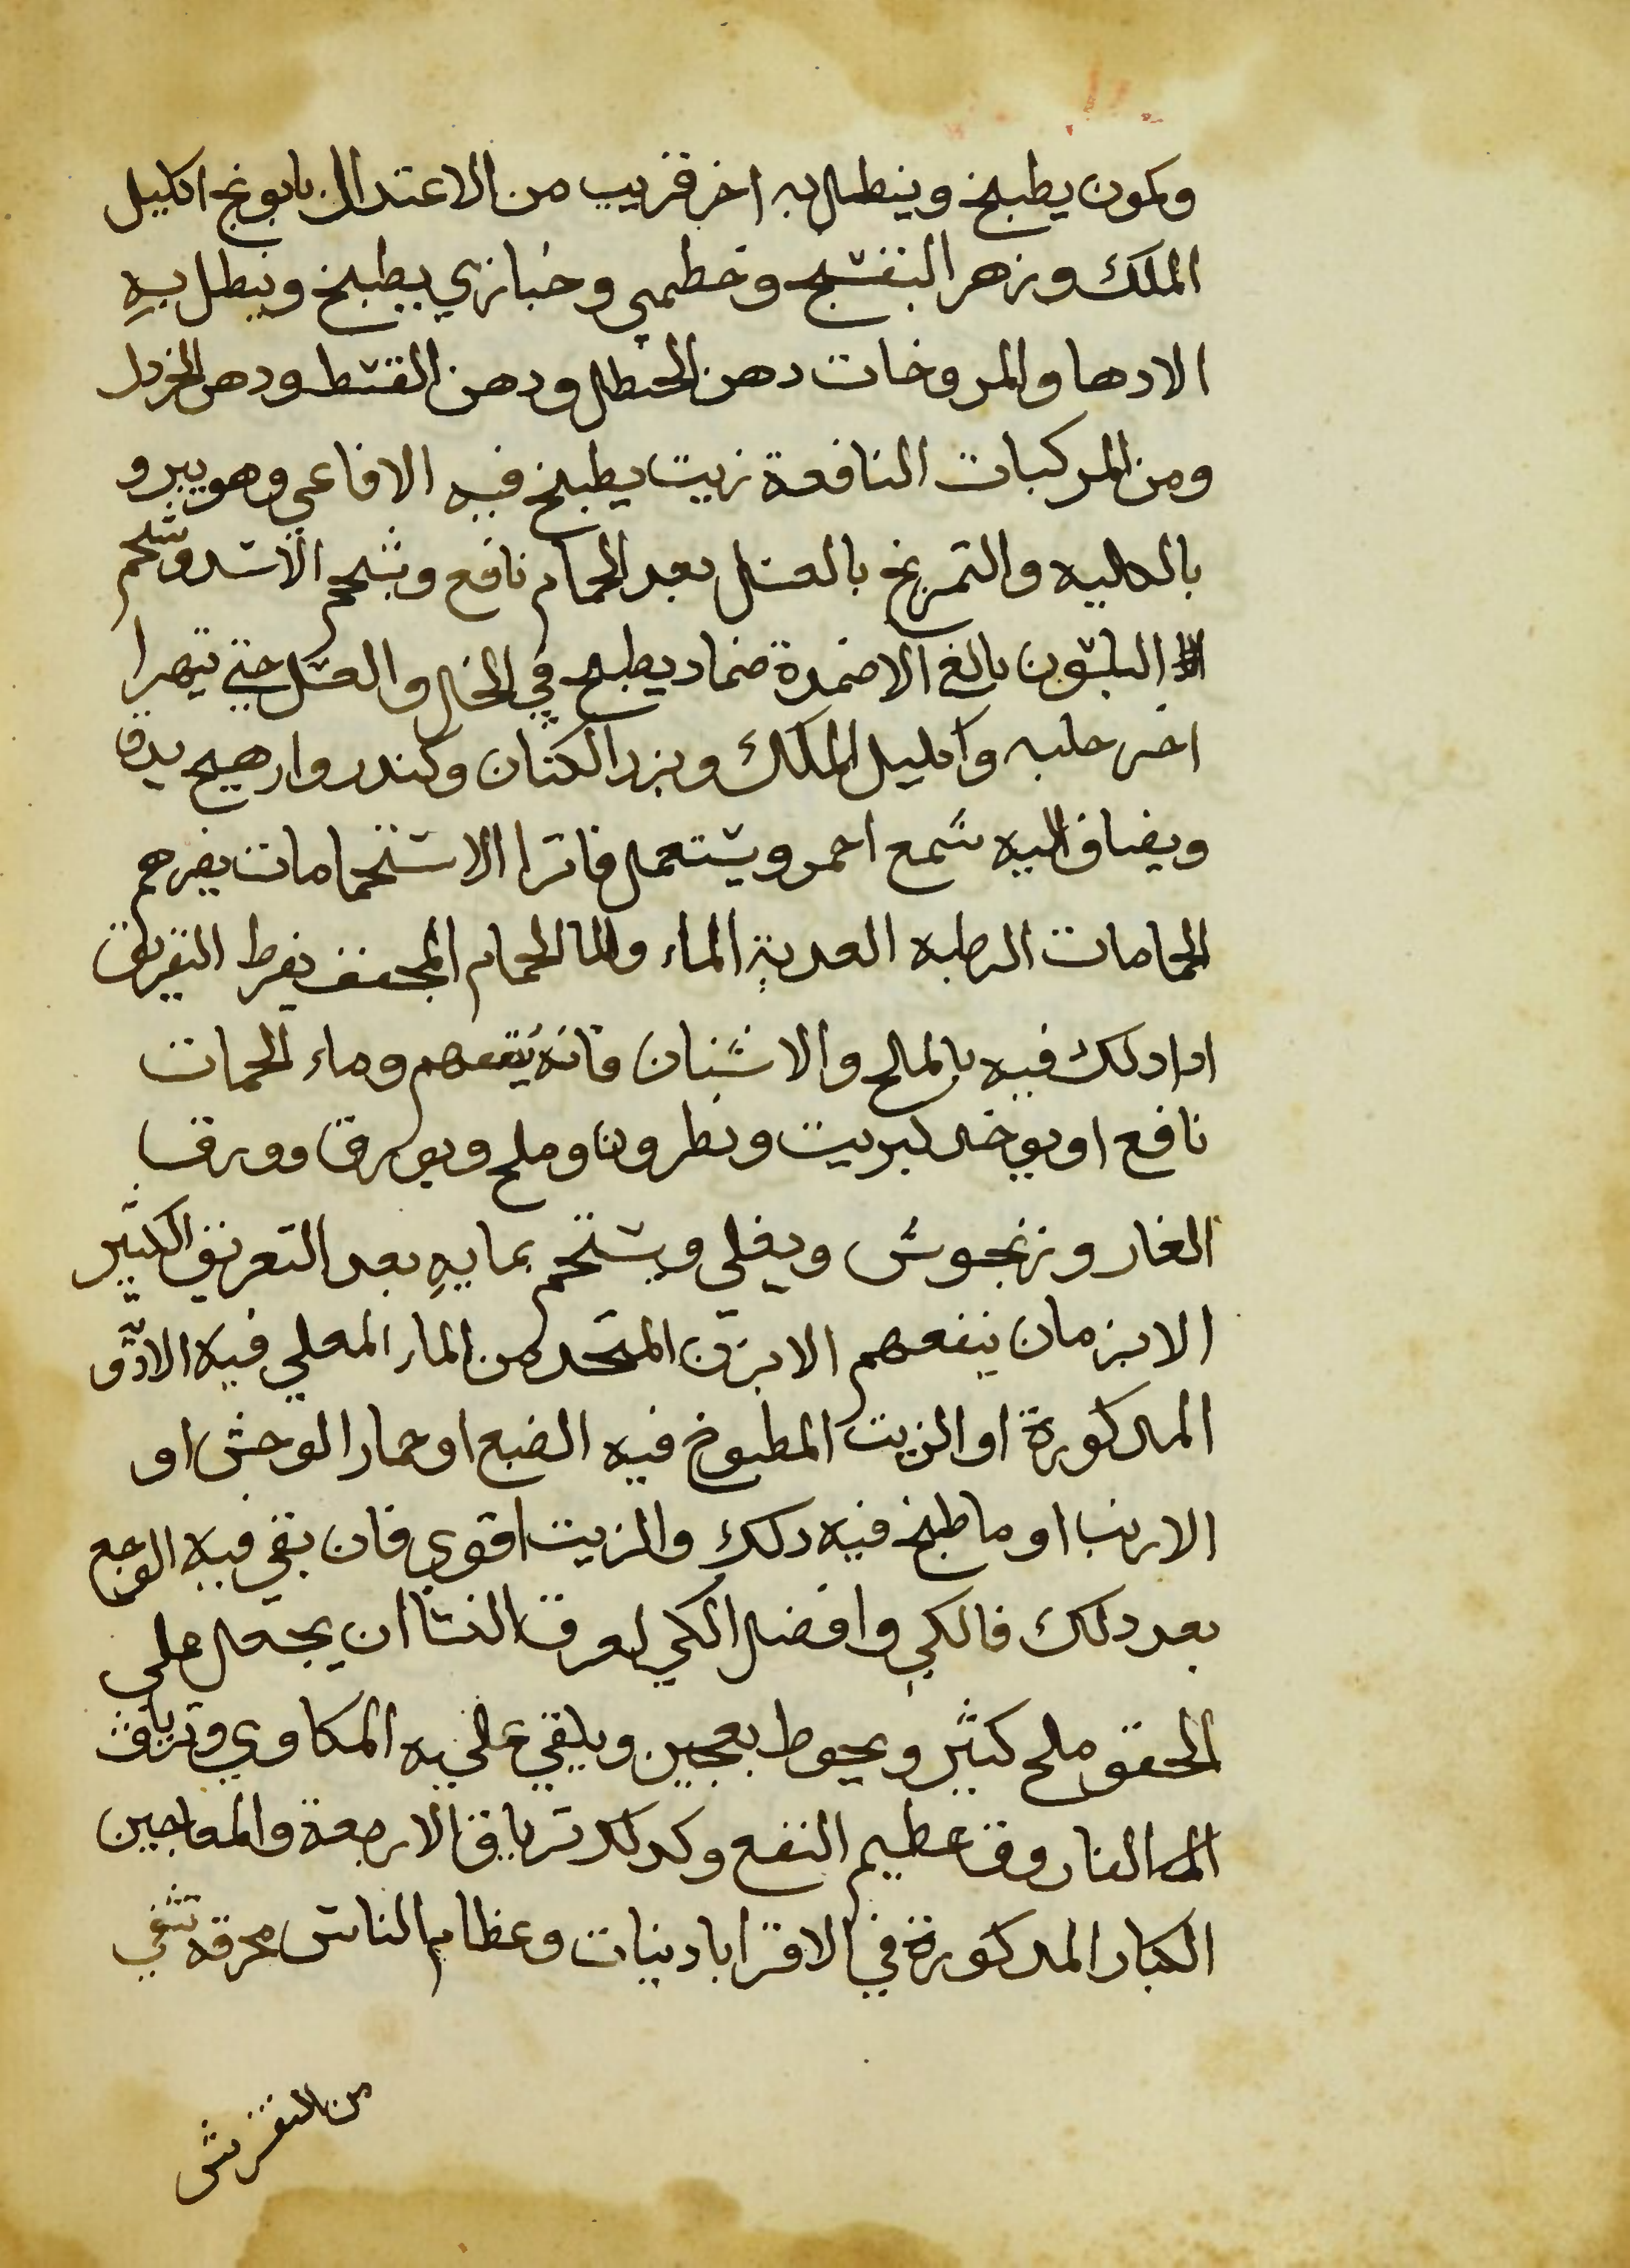 وكمون يطبخ وينطل به اخر قريب من الاعتدال بابونج اكليل
الملك وزهر البنفسج وخطمي وخبازي يطبخ وينطل به
الادها والمروخات دهن الحنطل ودهن القسط ودهن الخردل
ومن المركبات النافعة زيت يطبخ فيه الافاعي وهو يبرو
بالكليه والتمريخ بالعسل بعد الحمام نافع وشحم الاسد وشحم
البلسون بالغ الاضمدة ضماد يطبخ في الخل والعسل حتي يتهرا
اخر حلبه واكليل الملك وبزر الكتان وكندر وارهيج يدق
ويضاف اليه شمع احمر ويستعمل فاترا الاستحمامات يضرهم
الحمامات الرطبه العدبة الماء واما الحمام المجفف يفرط التعريق
ادا دلك فيه بالملح والاشنان فانه ينفعهم وماء الحمات
نافع او يوخد كبريت ونطرون وملح وبورق وورق
الغار وزنجوش ويغلي ويستحم بمايه بعد التعريق الكثير
الابزمان ينفعهم الابزن المتخد من الماء المغلي فيه الادو
المدكورة او الزيت المطبوخ فيه الضبع او حمار الوحش او
الارنب او ما طبخ فيه دلك والزيت اقوي فان بقي فيه الوجع
بعد دلك فالكي وافضل الكي لعرق النسا ان يجعل علي
الحقو ملح كثير ويحوط بعجين ويلقي عليه المكاوي وترياق
الفاروق عظيم النفع وكدلك ترياق الاربعة والمعاجين
الكبار المدكورة في الاقرابادينات وعظام الناس محرقه تشفي
من النقرس